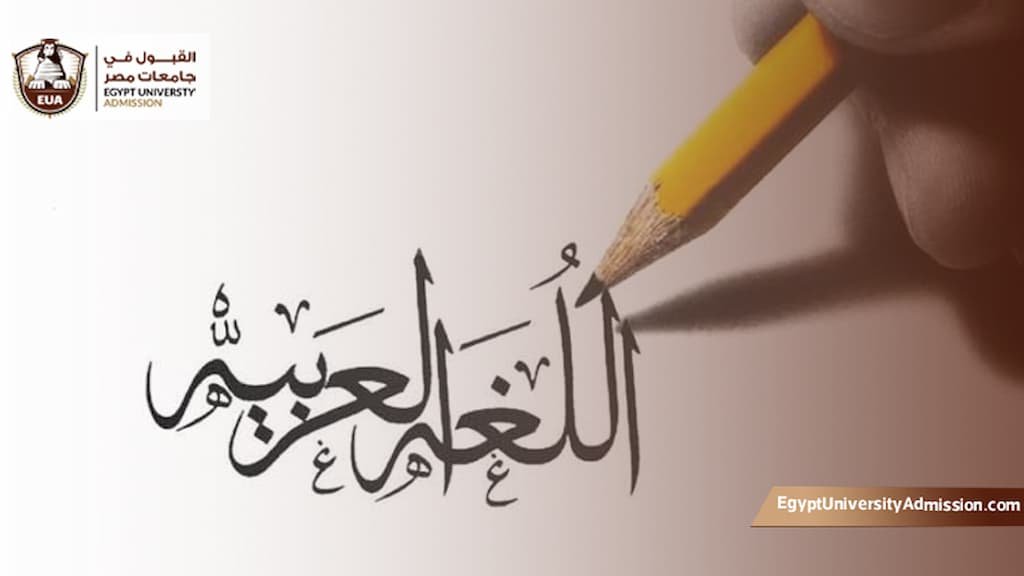 القبول في
جامعات مصر
EGYPT UNIVERSTY
ADMISSION
EUA
اللُغه العربيّه
EgyptUniversityAdmission.com